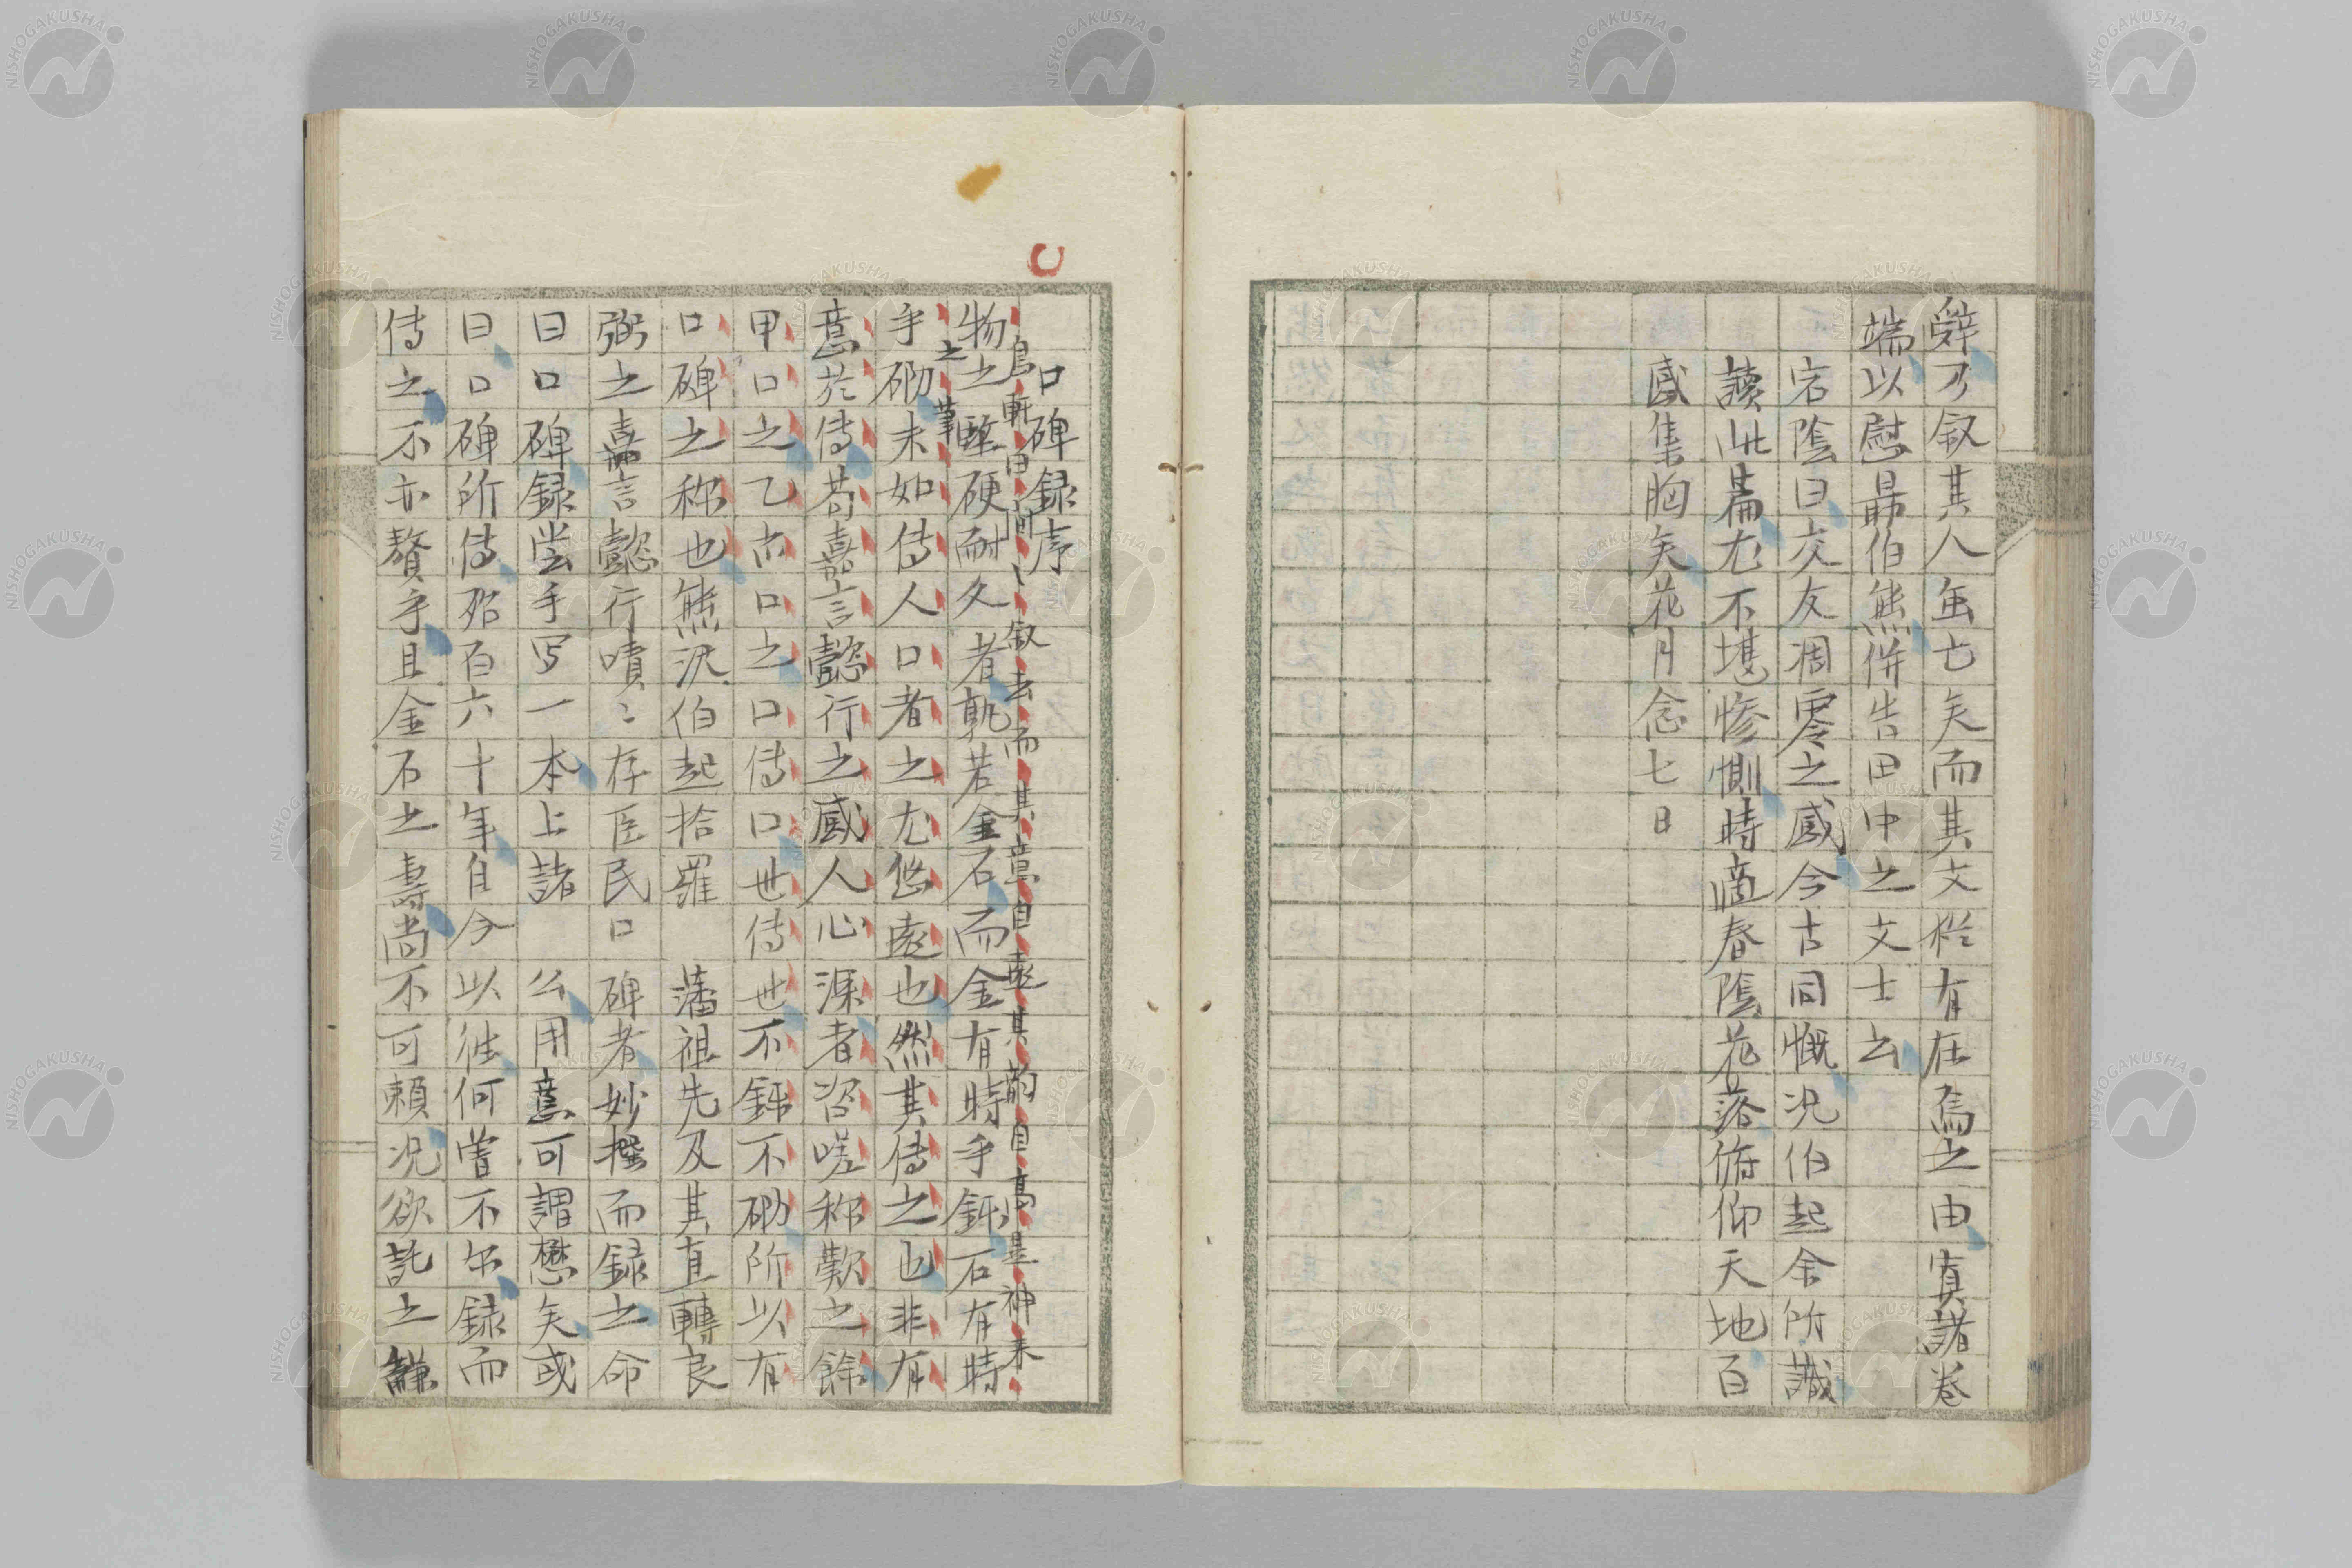 辤乃叙其人虽亡矣而其文猶有在焉之由寘諸卷
端以慰昻伯熊併告田中之文士云
宕陰曰交友凋零之感今古同慨况伯起余所識
讀此篇尤不堪惨惻時適春陰花落俯仰天地百
感集胸矣花月念七日
口碑録序
鳥軒曰閒〻叙去而其意自遠其韵自高是神来
之筆
物之堅硬耐久者孰若金石而金有時乎銒石有時
乎砌未如傳人口者之尤悠遠也然其傳之也非有
意於傳苟嘉言懿行之感人心深者咨嗟称歎之餘
甲口之乙亦口之口傳口世傳世不銒不砌所以有
口碑之称也熊沢伯起拾羅 藩祖先及其直轉良
弼之嘉言懿行嘖〻存臣民口碑者妙撰而録之命
曰口碑録尝手写一本上諸 公用意可謂懋矣或
曰口碑所傳殆百六十年自今以往何嘗不尔録而
傳之不亦贅乎且金石之壽尚不可頼况欲託之縑
NISHOGAKUSHA